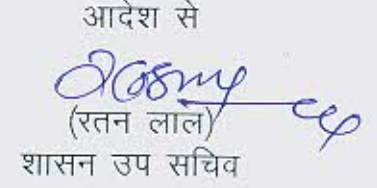 आदेश से
(रतन लाल)
शासन उप सचिव